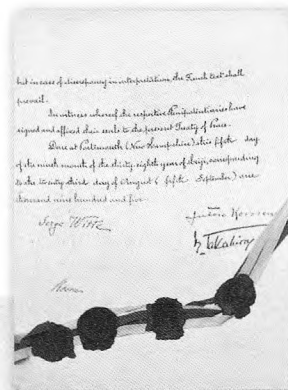 but in case of discrepancy in interpretation, the French text shall
prevail.
In witness whereof the respective Plenipotentiaries have
signed and affixed their seals to the present Treaty of Peace.
Done at Portsmouth (New Hampshire) this fifth day
of the ninth month of the thirty eighth year of Meiji, corresponding
to the twenty third day of August (fifth September) one
thousand nine hundred and five.
Serge Witte
Rosen
K. Takahira